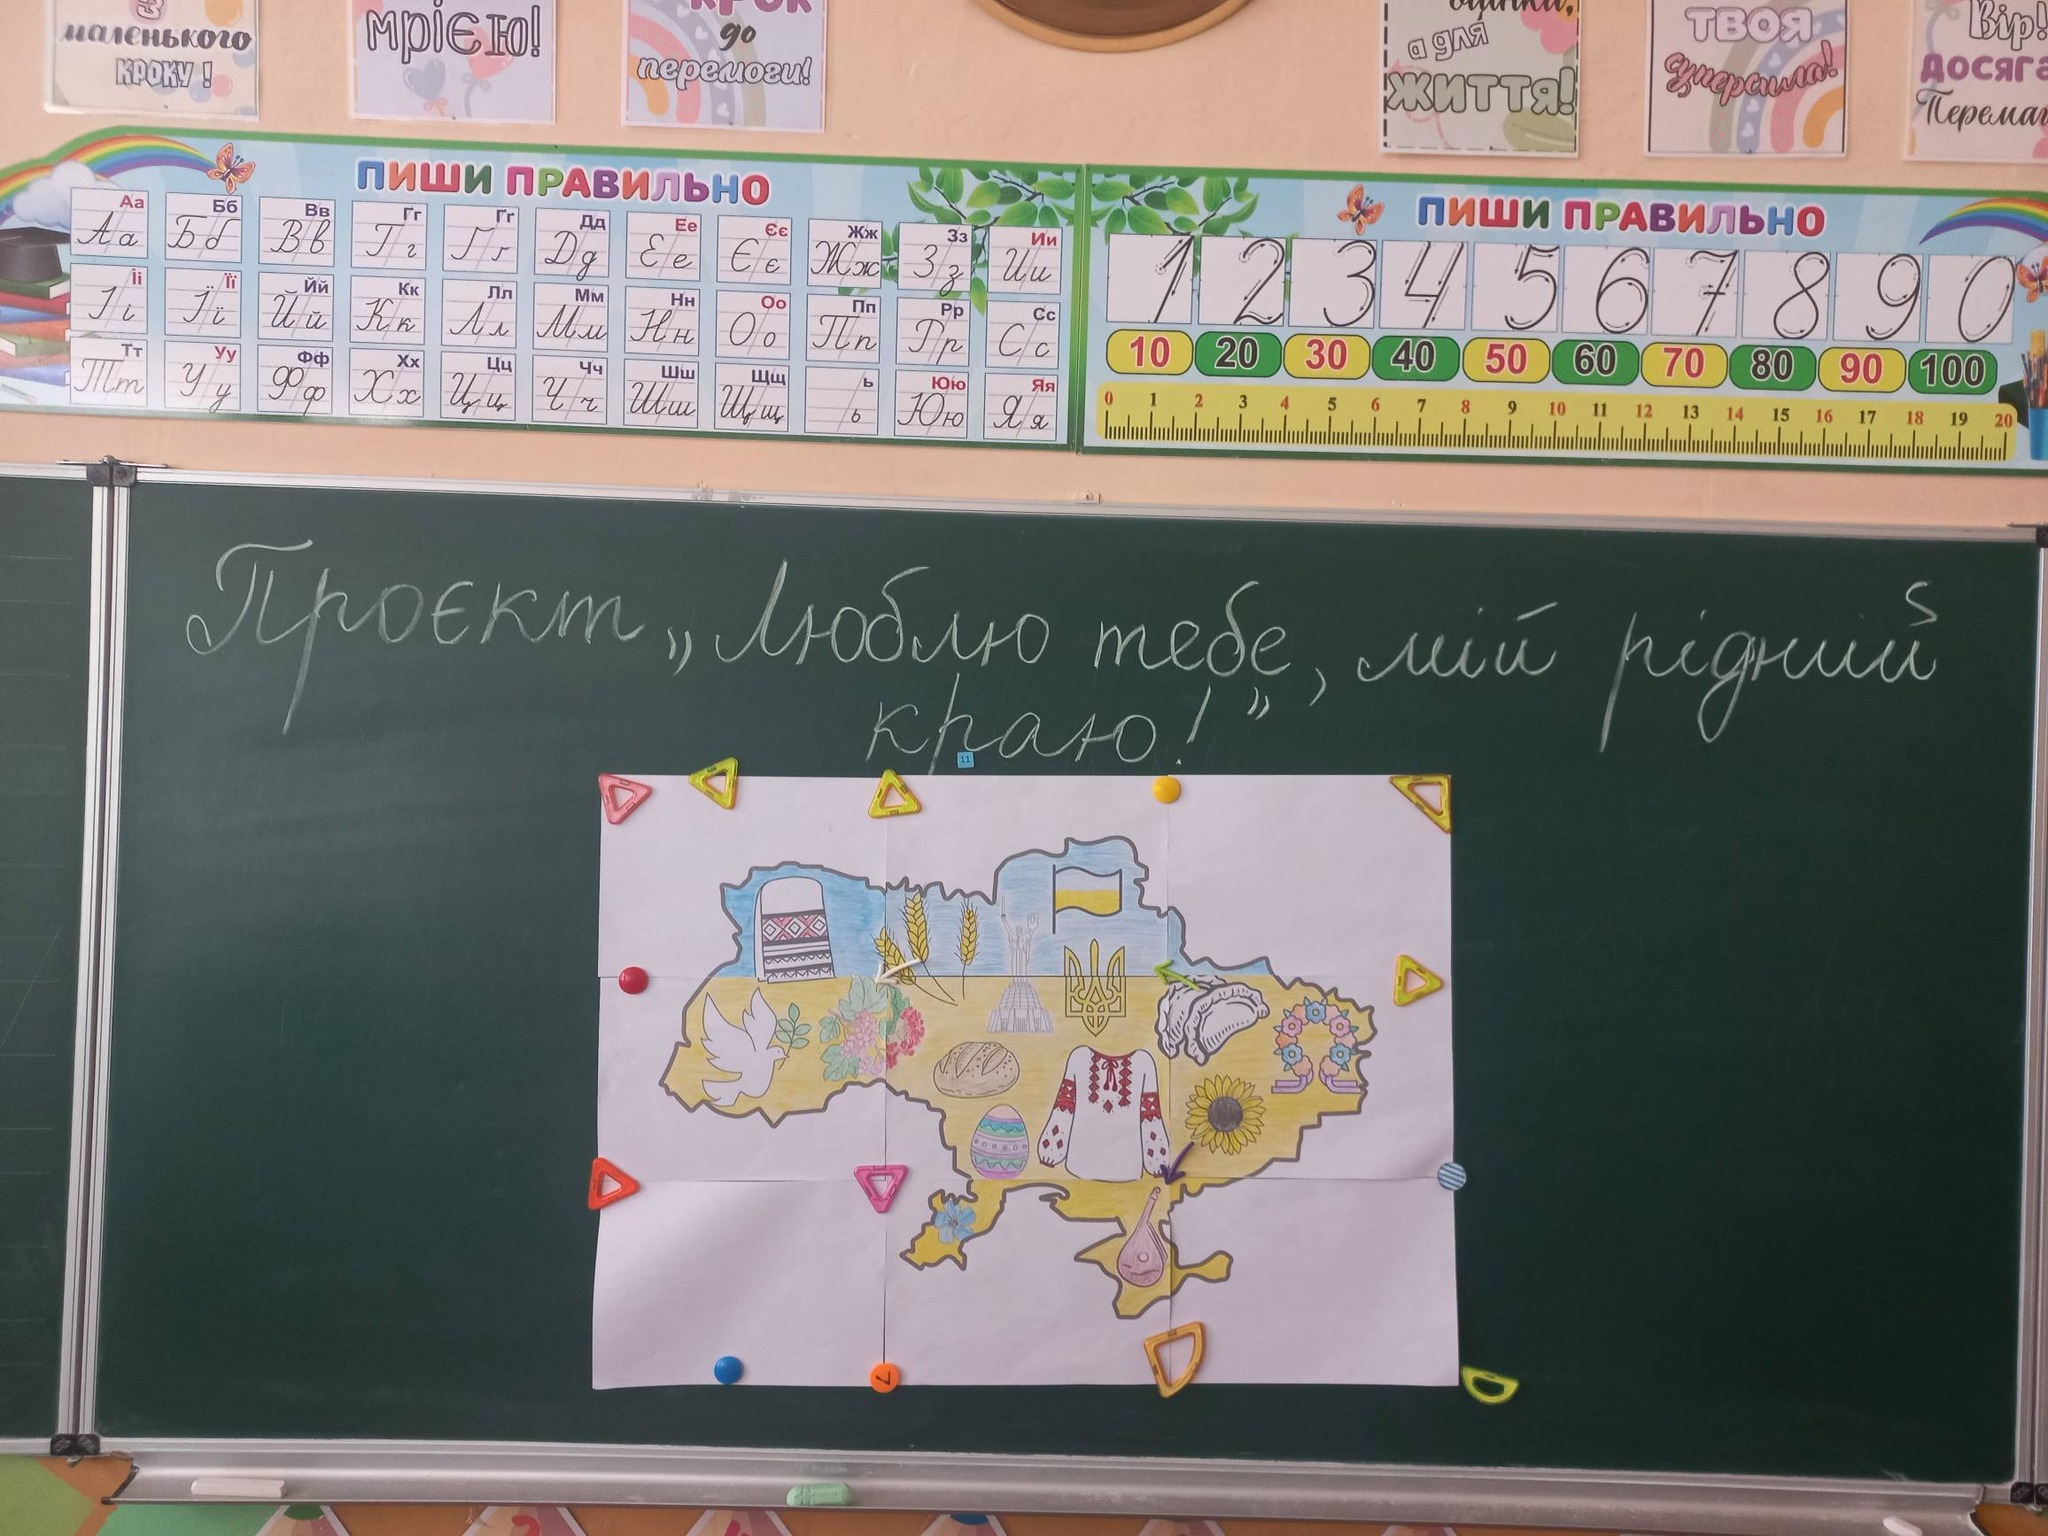 маленького
кроку!
мрією!
крок
до
перемоги!
а для
життя!
твоя
суперсила!
Вір!
ПИШИ ПРАВИЛЬНО
Аа Бб Вв Гг Ґґ Дд Ее Єє Жж Зз Ии
Аа Бб Вв Гг Ґґ Дд Ее Єє Жж Зз Ии
Іі Її Йй Кк Лл Мм Нн Оо Пп Рр Сс
Іі Її Йй Кк Лл Мм Нн Оо Пп Рр Сс
Тт Уу Фф Хх Цц Чч Шш Щщ ь Юю Яя
Тт Уу Фф Хх Цц Чч Шш Щщ ь Юю Яя
ПИШИ ПРАВИЛЬНО
1 2 3 4 5 6 7 8 9 0
10 20 30 40 50 60 70 80 90 100
0 1 2 3 4 5 6 7 8 9 10 11 12 13 14 15 16 17 18 19 20
Проєкт „Люблю тебе, мій рідний
краю!”
11
7